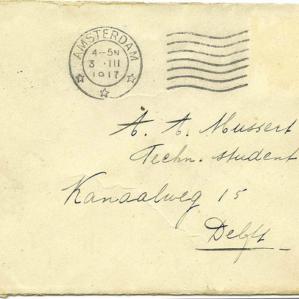 AMSTERDAM
4-5N
3 .III
1917
A. A. Mussert
Techn. student
Kanaalweg 15
Delft